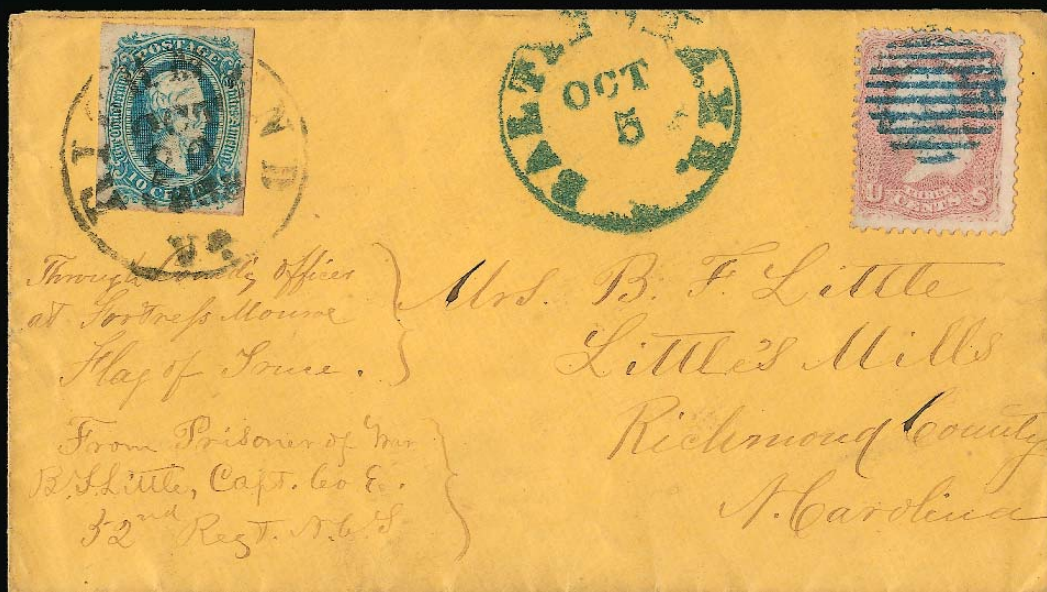 POSTAGE
The Confederate States of America
10 CENTS
RICHMOND
VA
BALTIMORE MD.
OCT
5
U 3 CENTS S
Through Comd'g Officer
at Fortress Monroe
Flag of Truce.
From Prisoner of War
B. F. Little, Capt. Co E.
52nd Regt. N. C. S
Mrs. B. F. Little
Little's Mills
Richmond County
N. Carolina